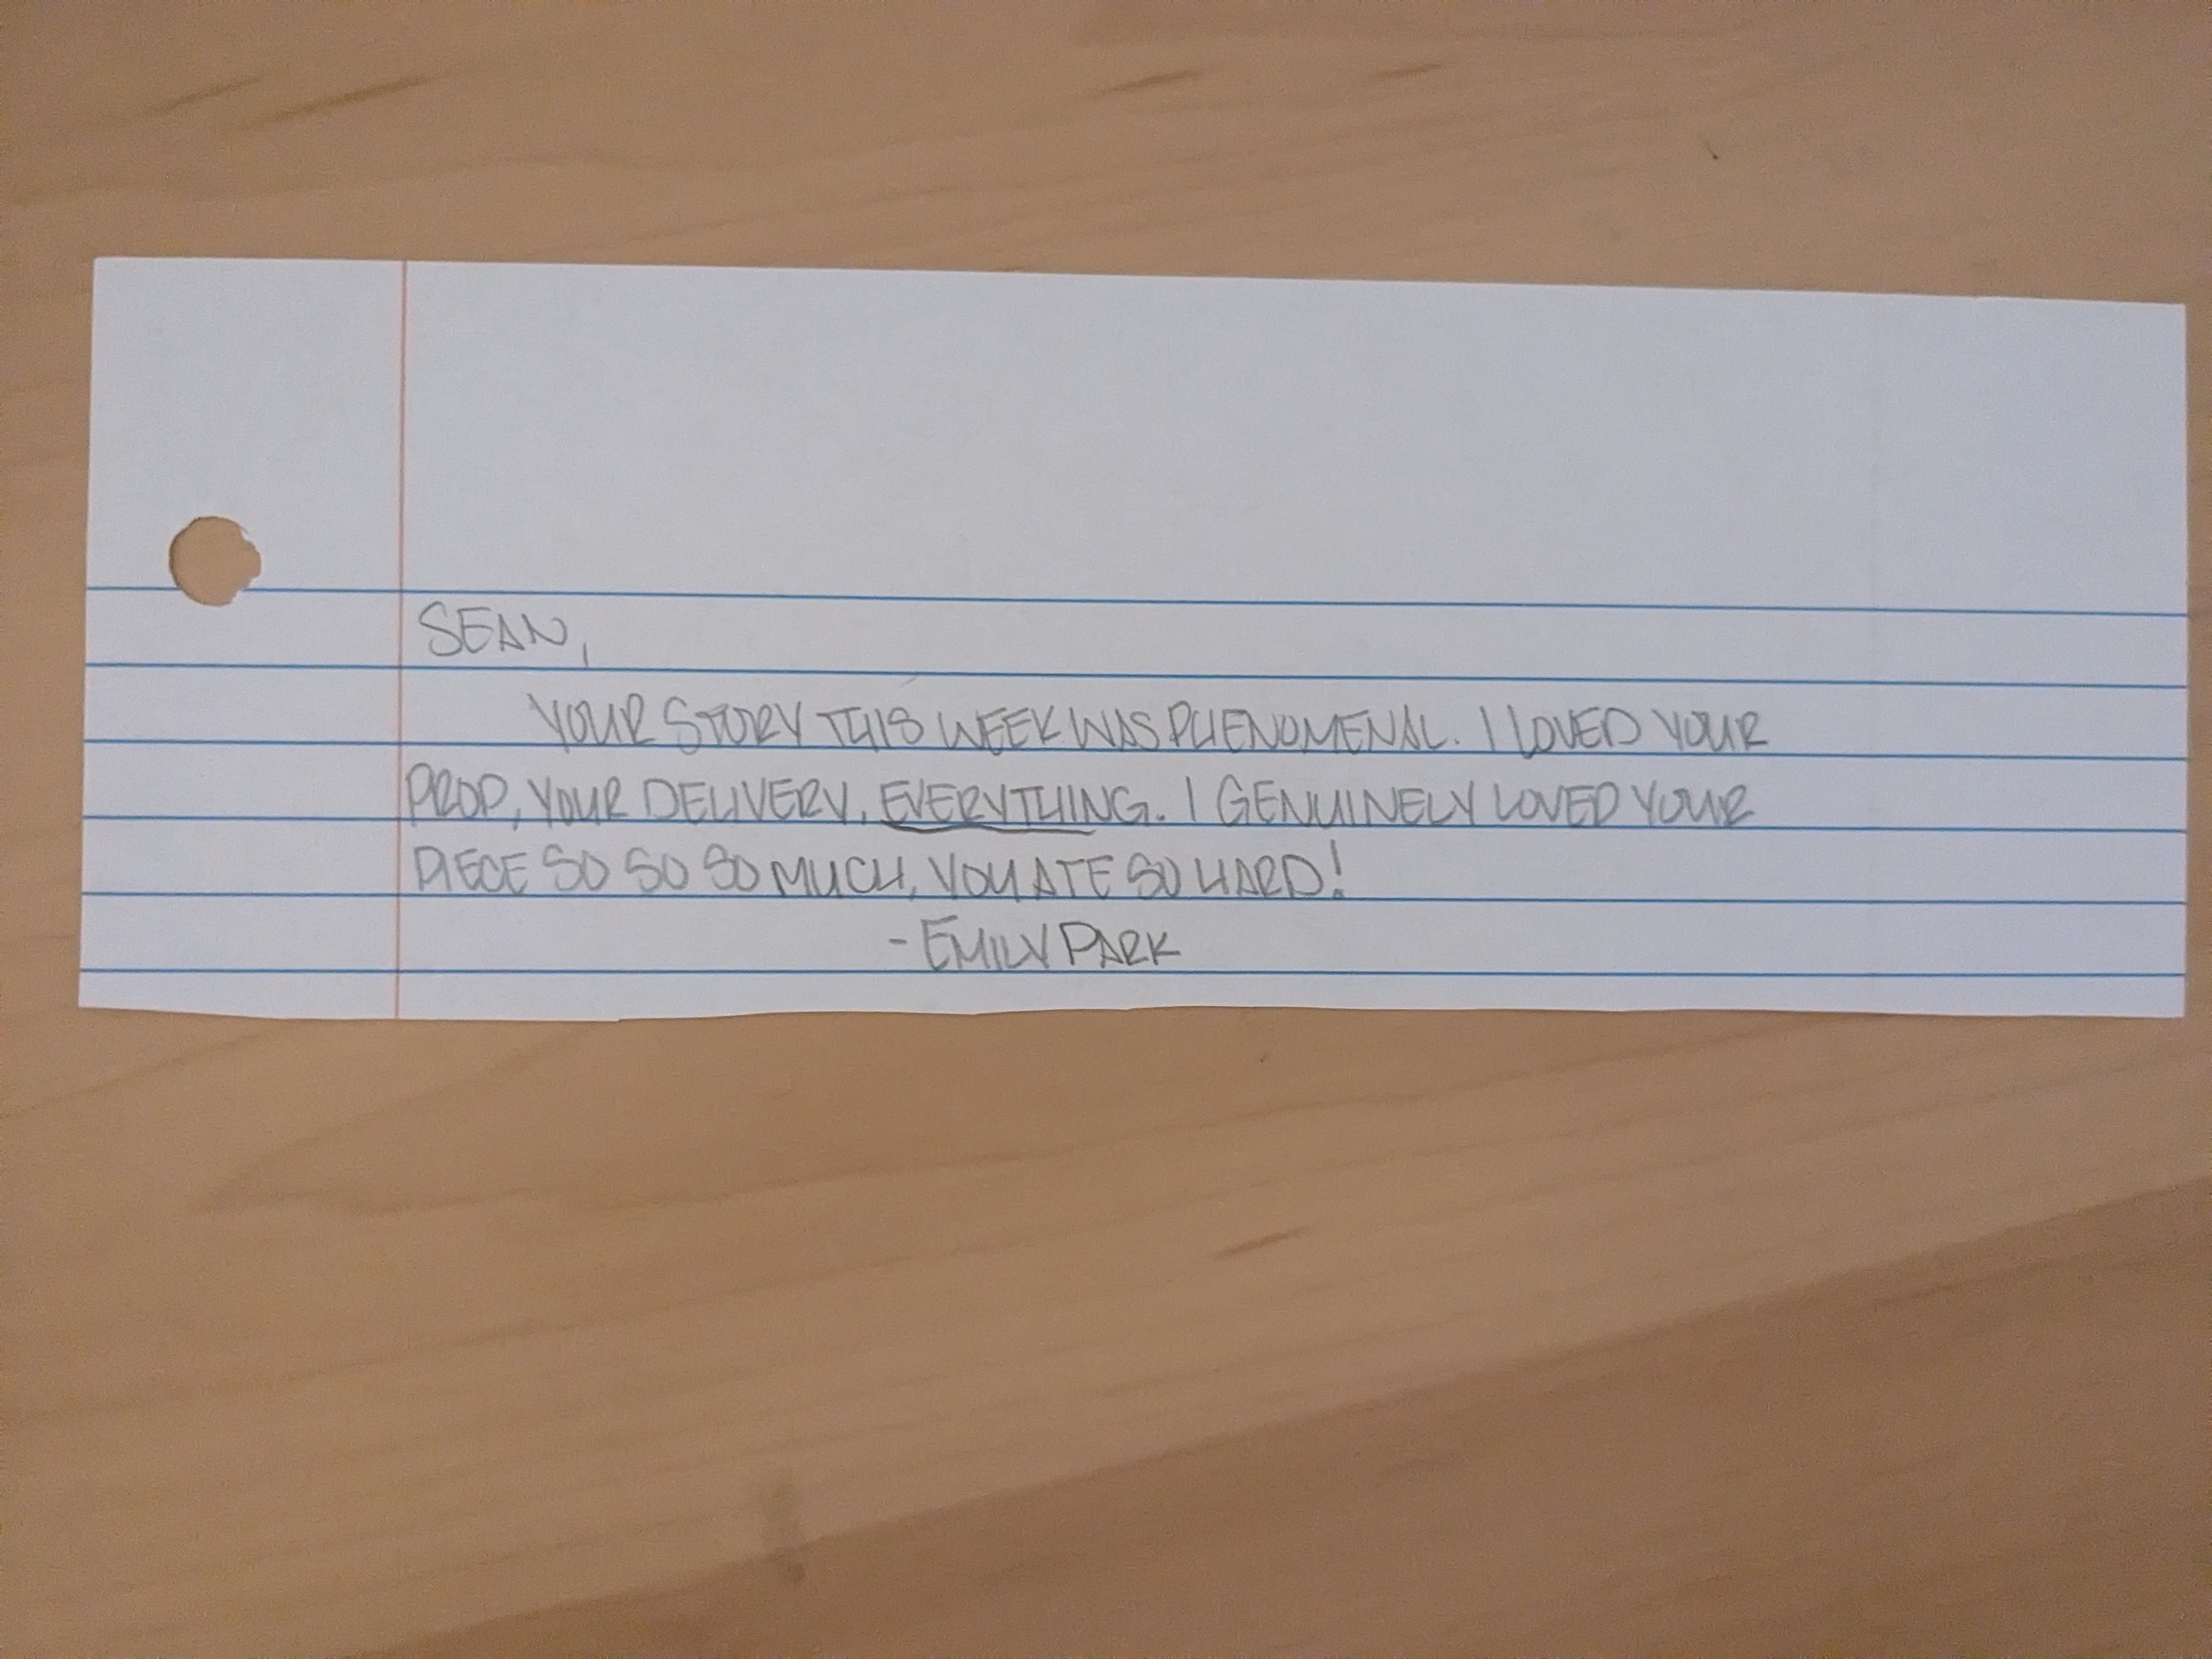 SEAN,
YOUR STORY THIS WEEK WAS PHENOMENAL. I LOVED YOUR
PROP, YOUR DELIVERY, EVERYTHING. I GENUINELY LOVED YOUR
PIECE SO SO SO MUCH, YOU ATE SO HARD!
- EMILY PARK